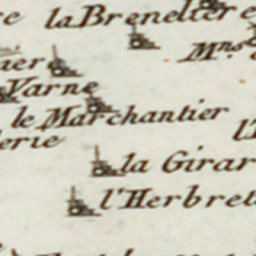 la Brenelier
Mns
Varne
le Marchantier
la Girar
l'Herbret